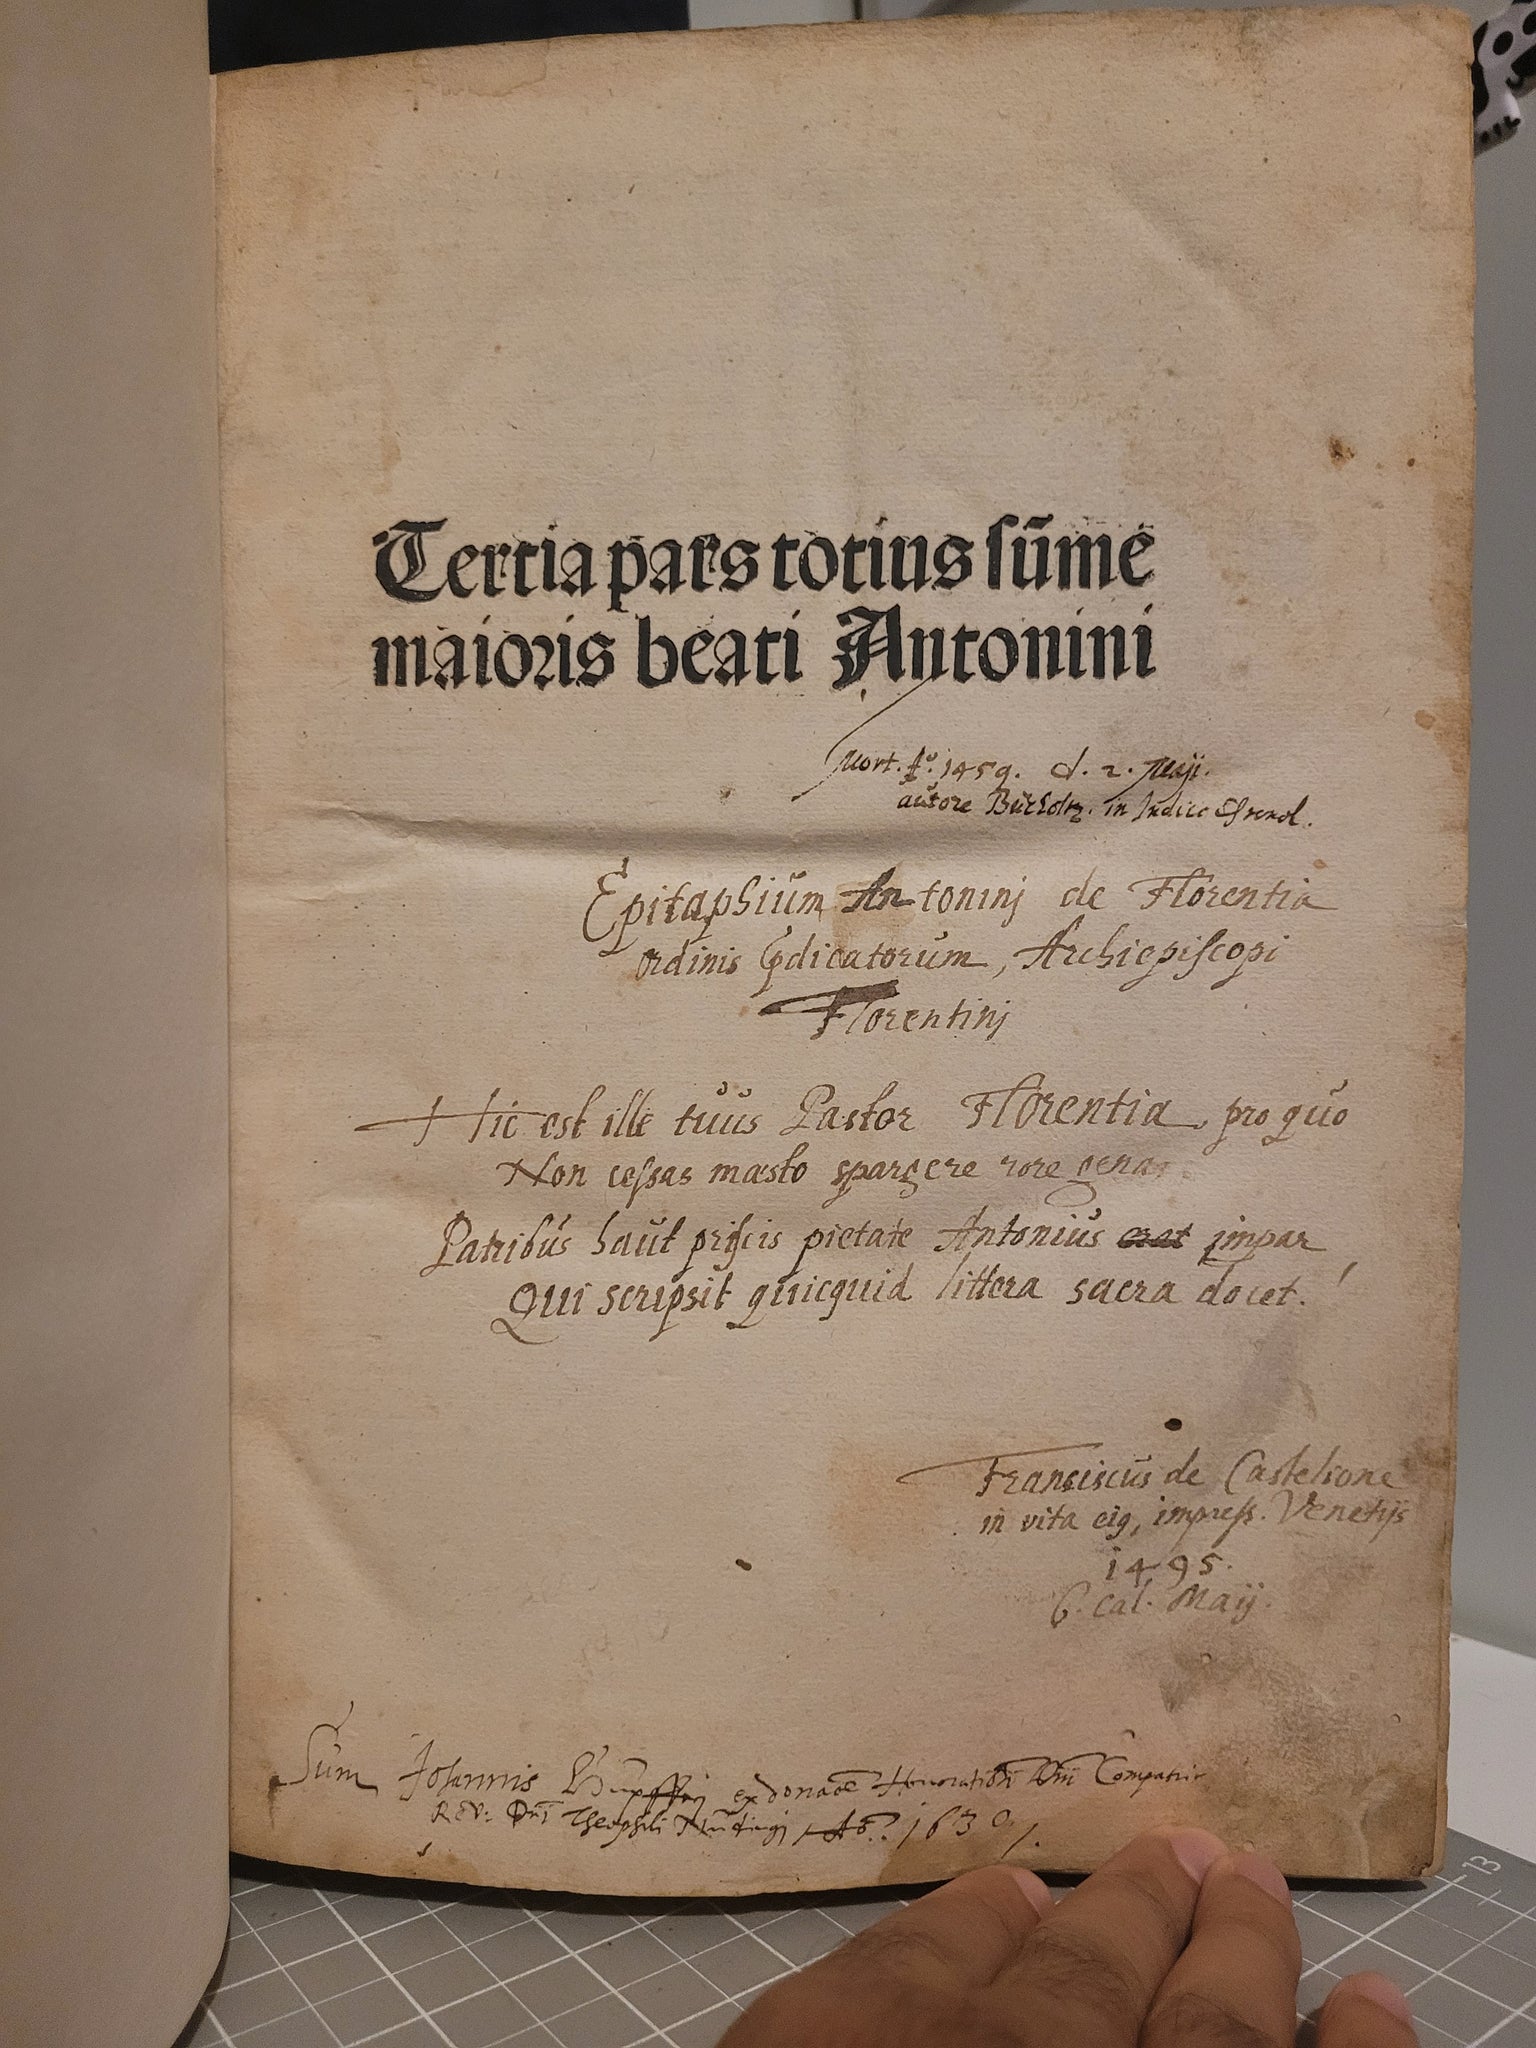 Tertia pars totius sūme
maioris beati Antonini
Mort. Aº. 1459. d. 2. Maji.
autore Bucholtz. in Indice Chronol.
Epitaphium Antoninj de Florentia
ordinis Pdicatorum, Archiepiscopi
Florentinj
Hic est ille tuus Pastor Florentia, pro quo
Non cessas mæsto spargere rore genas.
Patribus haut priscis pietate Antonius erat impar
Qui scripsit quicquid littera sacra docet.
Franciscus de Castelione
in vita eig, impress. Venetijs
1495.
6. Cal. Maij.
Sum Johannis ex donaōe Honorationi Dni Compatris
Rev: Dni Theophili Aō. 1630.
13